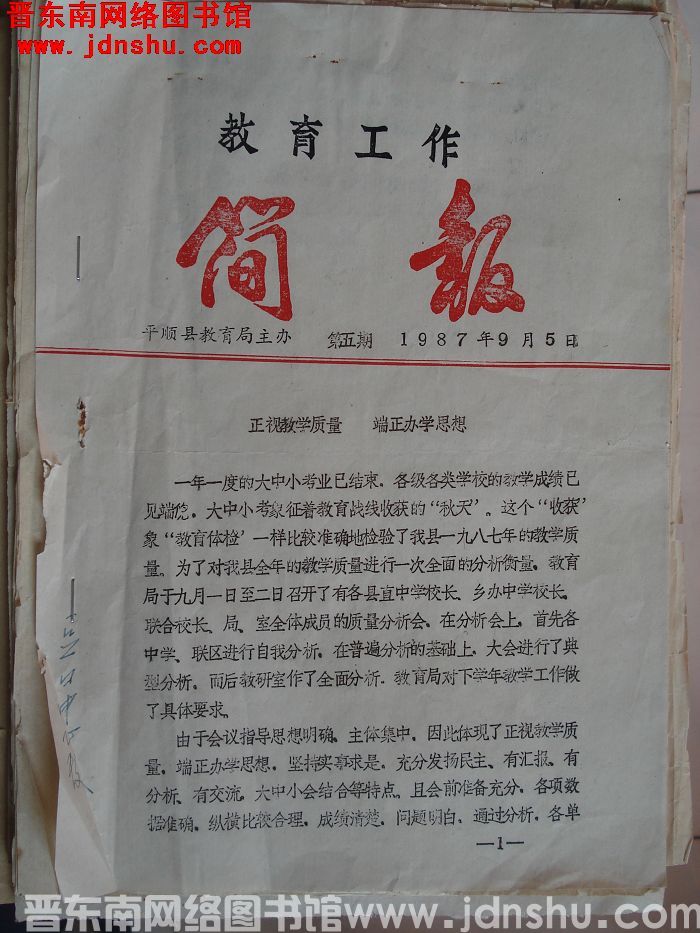 晋东南网络图书馆
www.jdnshu.com
教育工作
简报
平顺县教育局主办 第五期 1987年9月5日
正视教学质量 端正办学思想
一年一度的大中小考业已结束，各级各类学校的教学成绩已
见端倪，大中小考象征着教育战线收获的“秋天”。这个“收获”
象“教育体检”一样比较准确地检验了我县一九八七年的教学质
量。为了对我县全年的教学质量进行一次全面的分析衡量，教育
局于九月一日至二日召开了有各县直中学校长、乡办中学校长、
联合校长、局、室全体成员的质量分析会。在分析会上，首先各
中学、联区进行自我分析，在普遍分析的基础上，大会进行了典
型分析，而后教研室作了全面分析，教育局对下学年教学工作做
了具体要求。
由于会议指导思想明确，主体集中，因此体现了正视教学质
量，端正办学思想，坚持实事求是，充分发扬民主、有汇报、有
分析、有交流，大中小会结合等特点，且会前准备充分，各项数
据准确，纵横比较合理，成绩清楚，问题明白，通过分析，各单
—1—
晋东南网络图书馆www.jdnshu.com